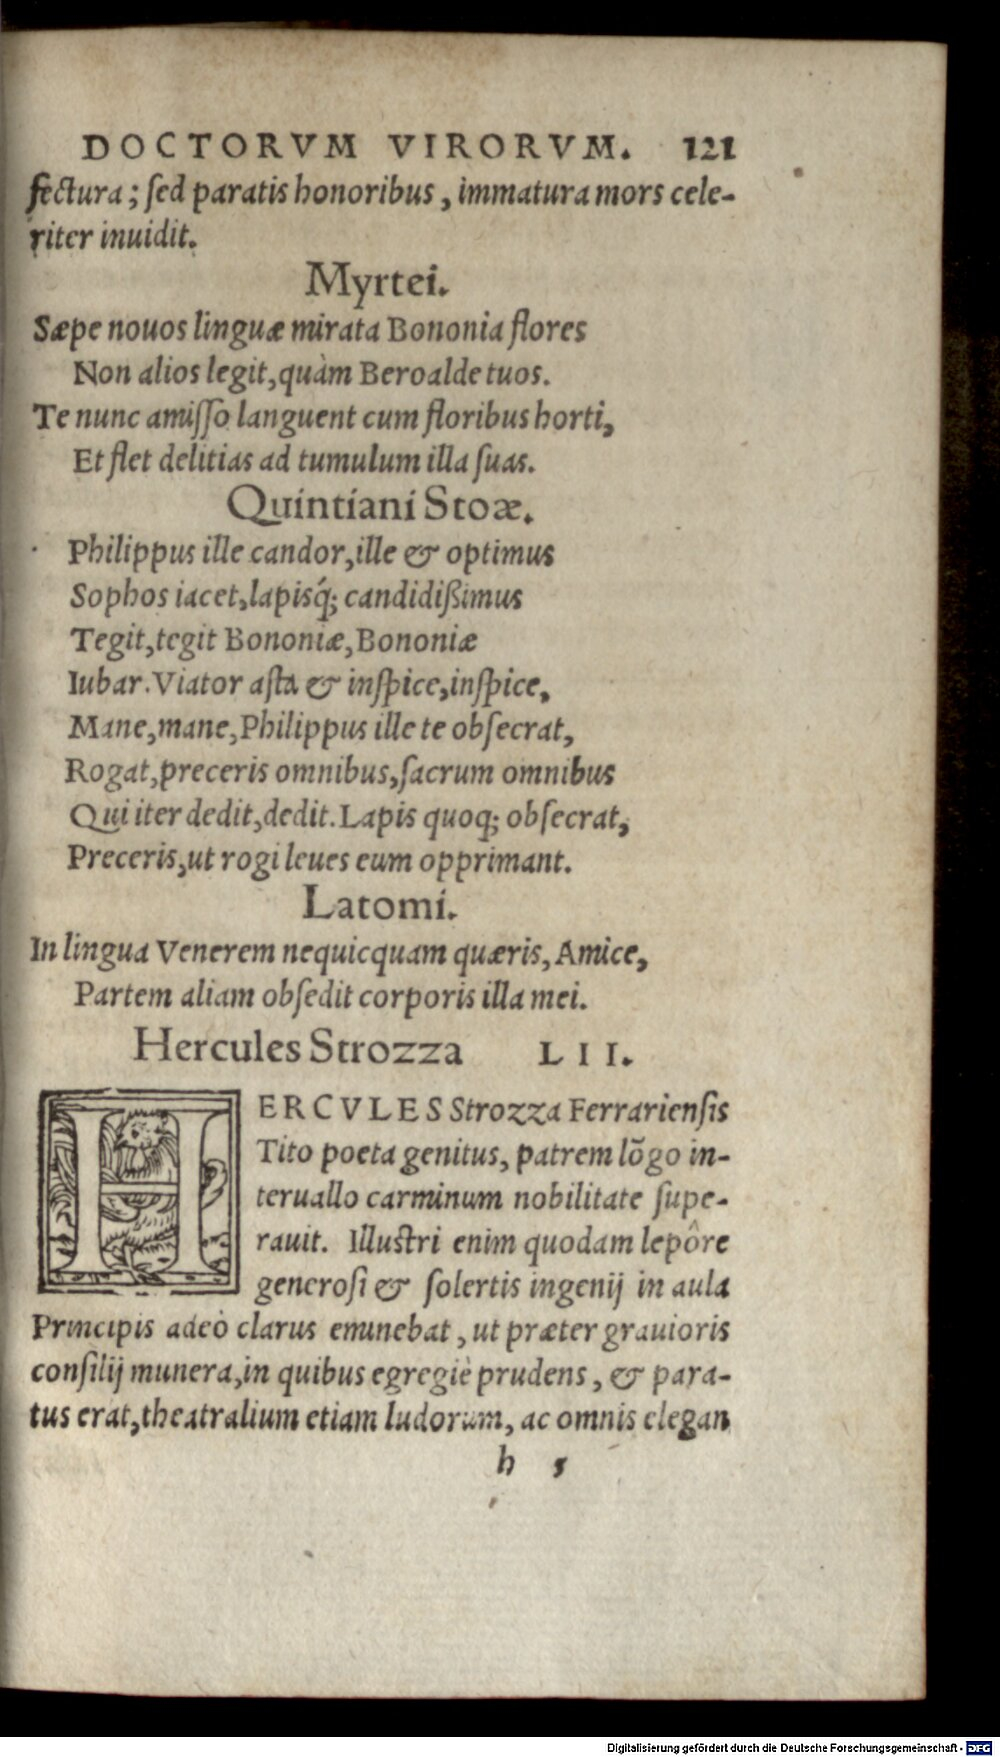 DOCTORVM VIRORVM. 121
fectura; sed paratis honoribus, immatura mors cele-
riter inuidit.
Myrtei.
Sæpe nouos linguæ mirata Bononia flores
Non alios legit, quàm Beroalde tuos.
Te nunc amisso languent cum floribus horti,
Et flet delitias ad tumulum illa suas.
Quintiani Stoæ.
Philippus ille candor, ille & optimus
Sophos iacet, lapisq́; candidißimus
Tegit, tegit Bononiæ, Bononiæ
Iubar. Viator asta & inspice, inspice,
Mane, mane, Philippus ille te obsecrat,
Rogat, preceris omnibus, sacrum omnibus
Qui iter dedit, dedit. Lapis quoq; obsecrat,
Preceris, ut rogi leues eum opprimant.
Latomi.
In lingua Venerem nequicquam quæris, Amice,
Partem aliam obsedit corporis illa mei.
Hercules Strozza LII.
HERCVLES Strozza Ferrariensis
Tito poeta genitus, patrem lõgo in-
teruallo carminum nobilitate supe-
rauit. Illustri enim quodam lepôre
generosi & solertis ingenij in aula
Principis adeò clarus eminebat, ut præter grauioris
consilij munera, in quibus egregiè prudens, & para-
tus erat, theatralium etiam ludorum, ac omnis elegan
h 5
Digitalisierung gefördert durch die Deutsche Forschungsgemeinschaft - DFG